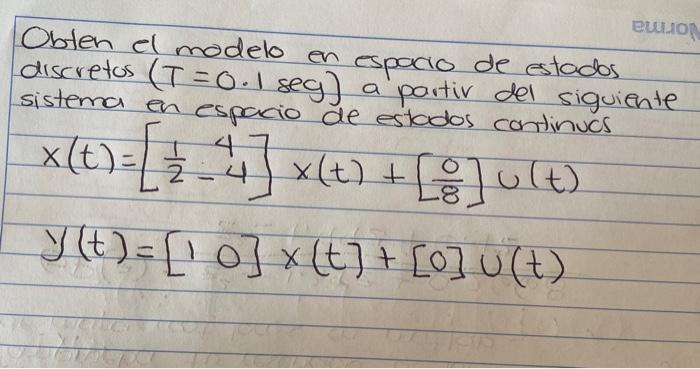 Norma
Obten el modelo en espacio de estados
discretos (T=0.1 seg) a partir del siguiente
sistema en espacio de estados continuos
x(t)=[1/2 4/-4] x(t) + [0/8] u(t)
y(t)=[1 0] x(t) + [0] u(t)